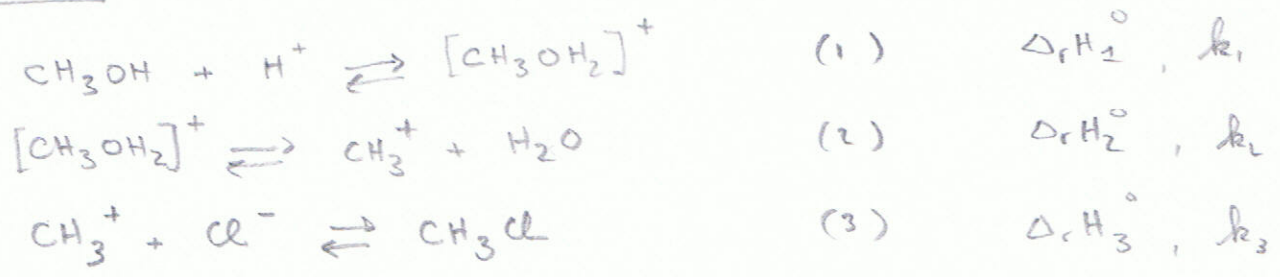 CH₃OH + H⁺ ⇌ [CH₃OH₂]⁺ (1) ΔᵣH₁°, k₁
[CH₃OH₂]⁺ ⇌ CH₃⁺ + H₂O (2) ΔᵣH₂°, k₂
CH₃⁺ + Cl⁻ ⇌ CH₃Cl (3) ΔᵣH₃°, k₃